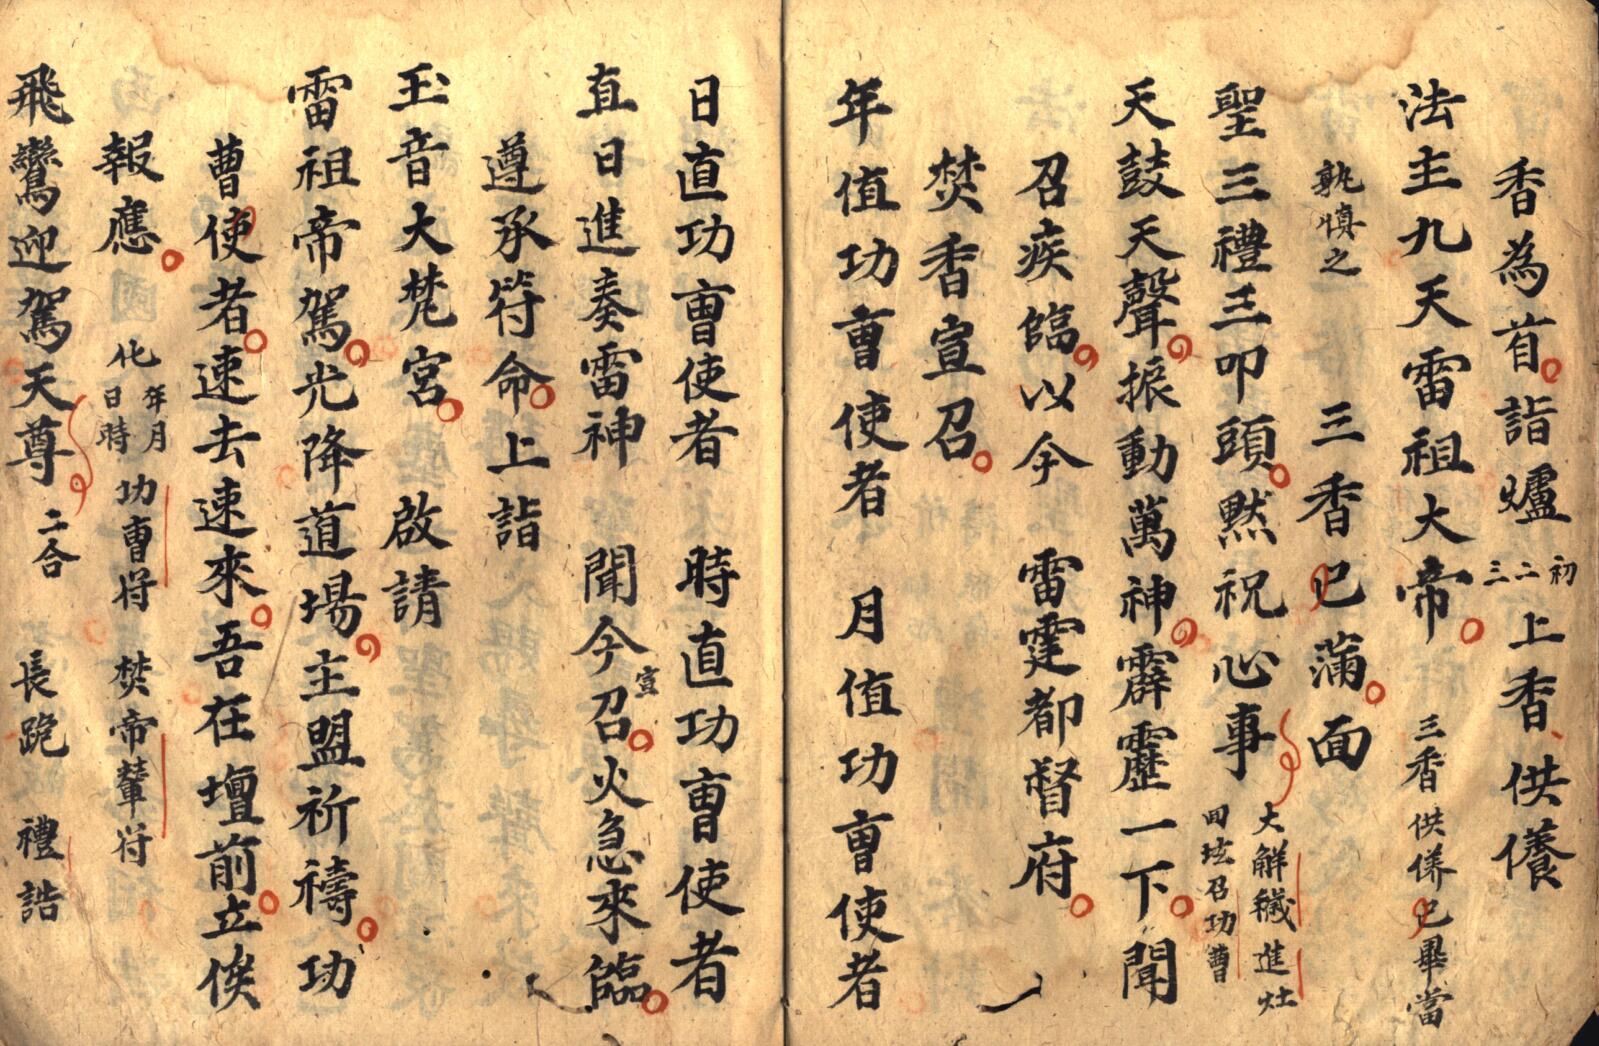 香為首詣爐初二三上香供儀
法主九天雷祖大帝三香供儀已畢當
孰慎之三香已滿面
聖三禮三叩頭默祝心事大解穢進灶回坛召功曹
天鼓天聲振動萬神霹靂一下聞
召疾臨以今雷霆都督府
焚香宣召
年值功曹使者月值功曹使者
日直功曹使者時直功曹使者
直日進奏雷神聞今宣召火急來臨
遵承符命上詣
玉音大梵宮啟請
雷祖帝駕光降道場主盟祈禱功
曹使者速去速來吾在壇前立俟
報應化年月日時功曹符焚帝輦符
飛鸞迎駕天尊二合長跪禮誥